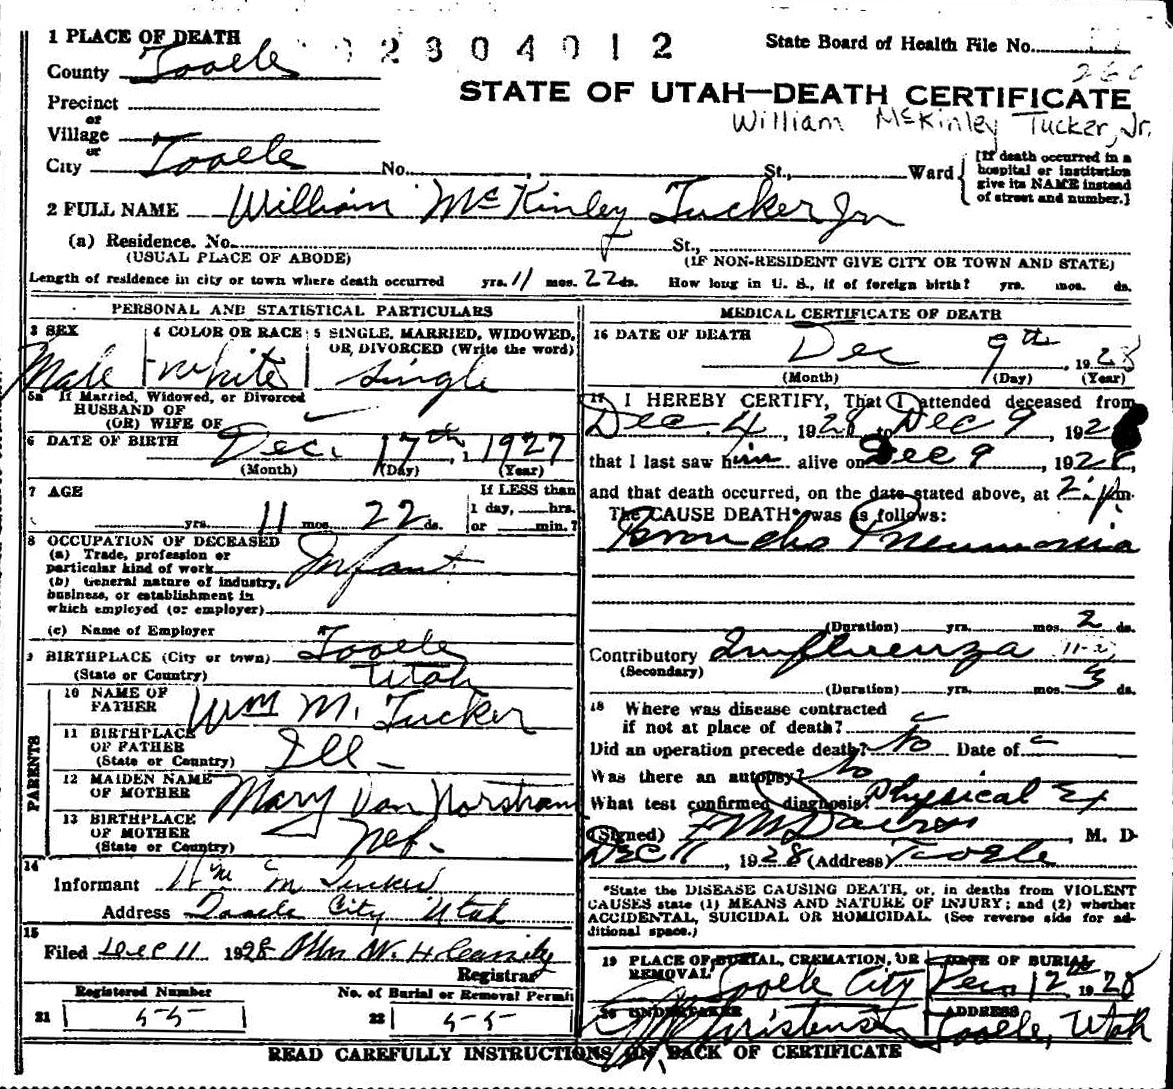 1 PLACE OF DEATH
2 3 0 4 0 1 2
State Board of Health File No.
County Tooele
260
STATE OF UTAH—DEATH CERTIFICATE
Precinct
William McKinley Tucker, Jr.
or
Village
or
City Tooele No. , St., Ward
[If death occurred in a
hospital or institution
give its NAME instead
of street and number.]
2 FULL NAME William McKinley Tucker Jr
(a) Residence. No. St.,
(USUAL PLACE OF ABODE) (IF NON-RESIDENT GIVE CITY OR TOWN AND STATE)
Length of residence in city or town where death occurred yrs. 11 mos. 22 ds. How long in U. S., if of foreign birth? yrs. mos. ds.
PERSONAL AND STATISTICAL PARTICULARS
3 SEX 4 COLOR OR RACE 5 SINGLE, MARRIED, WIDOWED,
OR DIVORCED (Write the word)
Male White Single
5a If Married, Widowed, or Divorced
HUSBAND OF
(OR) WIFE OF
6 DATE OF BIRTH Dec. 17th, 1927
(Month) (Day) (Year)
7 AGE If LESS than
1 day, hrs.
yrs. 11 mos. 22 ds. or min.?
8 OCCUPATION OF DECEASED
(a) Trade, profession or
particular kind of work Infant
(b) General nature of industry,
business, or establishment in
which employed (or employer)
(c) Name of Employer
9 BIRTHPLACE (City or town) Tooele
(State or Country) Utah
PARENTS
10 NAME OF
FATHER Wm M. Tucker
11 BIRTHPLACE
OF FATHER Ill
(State or Country)
12 MAIDEN NAME
OF MOTHER Mary Van Norsham
13 BIRTHPLACE
OF MOTHER Neb.
(State or Country)
14
Informant Wm Mc Tucker
Address Tooele City Utah
15
Filed Dec 11 1928
Registrar
Registered Number No. of Burial or Removal Permit
21 55 22 55
MEDICAL CERTIFICATE OF DEATH
16 DATE OF DEATH Dec 9th, 1928
(Month) (Day) (Year)
17 I HEREBY CERTIFY, That I attended deceased from
Dec. 4, 1928 to Dec 9, 192
that I last saw him alive on Dec 9, 1928,
and that death occurred, on the date stated above, at 2 p.m.
The CAUSE DEATH* was as follows:
Broncho Pneumonia
(Duration) yrs. mos. 2 ds.
Contributory Influenza 11-2
(Secondary)
(Duration) yrs. mos. 5 ds.
18 Where was disease contracted
if not at place of death?
Did an operation precede death? No Date of
Was there an autopsy? No
What test confirmed diagnosis? Physical Ex
(Signed) M. D
Dec 11, 1928 (Address) Tooele
*State the DISEASE CAUSING DEATH, or, in deaths from VIOLENT
CAUSES state (1) MEANS AND NATURE OF INJURY; and (2) whether
ACCIDENTAL, SUICIDAL OR HOMICIDAL. (See reverse side for ad-
ditional space.)
19 PLACE OF BURIAL, CREMATION, OR DATE OF BURIAL
REMOVAL Tooele City Dec. 12th 1928
20 UNDERTAKER ADDRESS
Christensen Tooele, Utah
READ CAREFULLY INSTRUCTIONS ON BACK OF CERTIFICATE